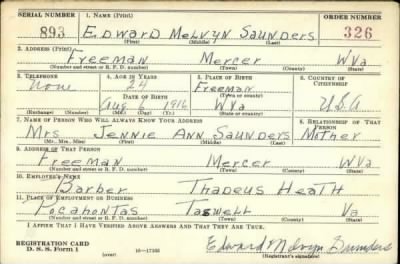 SERIAL NUMBER 1. NAME (Print) ORDER NUMBER
893 EDWARD MELVYN SAUNDERS 326
(First) (Middle) (Last)
2. ADDRESS (Print)
Freeman Mercer WVa
(Number and street or R. F. D. number) (Town) (County) (State)
3. TELEPHONE 4. AGE IN YEARS 5. PLACE OF BIRTH 6. COUNTRY OF CITIZENSHIP
None 24 Freeman
DATE OF BIRTH (Town or county)
Aug 6 1916 WVa USA
(Exchange) (Number) (Mo.) (Day) (Yr.) (State or country)
7. NAME OF PERSON WHO WILL ALWAYS KNOW YOUR ADDRESS 8. RELATIONSHIP OF THAT PERSON
Mrs JENNIE ANN SAUNDERS Mother
(Mr., Mrs., Miss) (First) (Middle) (Last)
9. ADDRESS OF THAT PERSON
Freeman Mercer WVa
(Number and street or R. F. D. number) (Town) (County) (State)
10. EMPLOYER'S NAME
Barber Thadeus Heath
11. PLACE OF EMPLOYMENT OR BUSINESS
Pocahontas Taswell Va
(Number and street or R. F. D. number) (Town) (County) (State)
I AFFIRM THAT I HAVE VERIFIED ABOVE ANSWERS AND THAT THEY ARE TRUE.
REGISTRATION CARD
D. S. S. Form 1 (over) 16—17105 Edward Melvyn Saunders
(Registrant's signature)